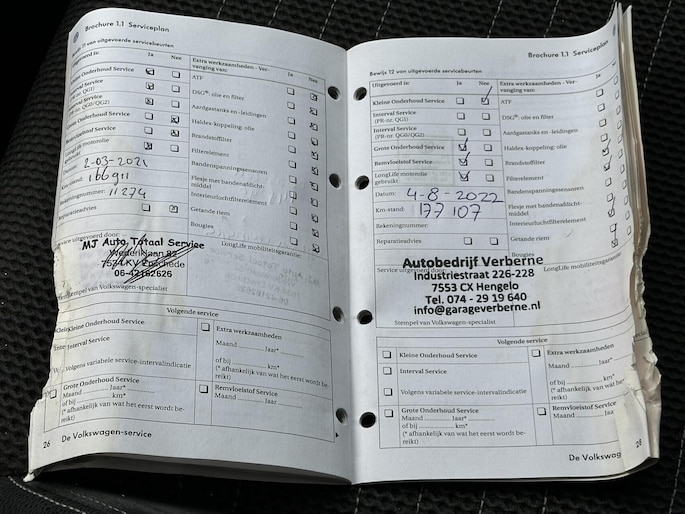 Brochure 1.1 Serviceplan
Bewijs 11 van uitgevoerde servicebeurten
Uitgevoerd is: Ja Nee
Onderhoud Service
Service
(PR-nr. QG1)
Service
QG0/QG2)
Onderhoud Service
Service
motorolie
gebruikt
2-03-2021
Km-stand: 166911
nummer: 11274
Reparatieadvies
Extra werkzaamheden - Ver-
vanging van: Ja Nee
ATF
DSG®: olie en filter
Aardgastanks en -leidingen
Haldex-koppeling: olie
Brandstoffilter
Filterelement
Bandenspanningssensoren
Flesje met bandenafdicht-
middel
Interieurluchtfilterelement
Getande riem
Bougies
LongLife mobiliteitsgarantie:
Service uitgevoerd door:
MJ Auto Totaal Service
06-42162626
Stempel van Volkswagen-specialist
Volgende service
Kleine Onderhoud Service
Volgens variabele service-intervalindicatie
Grote Onderhoud Service
Maand Jaar*
of bij km*
(* afhankelijk van wat het eerst wordt be-
reikt)
Extra werkzaamheden
Maand Jaar*
of bij km*
(* afhankelijk van wat het eerst wordt be-
reikt)
Remvloeistof Service
Maand Jaar
26 De Volkswagen-service
Brochure 1.1 Serviceplan
Bewijs 12 van uitgevoerde servicebeurten
Uitgevoerd is: Ja Nee
Kleine Onderhoud Service
Interval Service
(PR-nr. QG1)
Interval Service
(PR-nr. QG0/QG2)
Grote Onderhoud Service
Remvloeistof Service
LongLife motorolie
gebruikt
Datum: 4-8-2022
Km-stand: 177 107
Rekeningnummer:
Reparatieadvies
Extra werkzaamheden - Ver-
vanging van: Ja Nee
ATF
DSG®: olie en filter
Aardgastanks en -leidingen
Haldex-koppeling: olie
Brandstoffilter
Filterelement
Bandenspanningssensoren
Flesje met bandenafdicht-
middel
Interieurluchtfilterelement
Getande riem
Bougies
LongLife mobiliteitsgarantie:
Service uitgevoerd door:
Autobedrijf Verberne
Industriestraat 226-228
7553 CX Hengelo
Tel. 074 - 29 19 640
info@garageverberne.nl
Stempel van Volkswagen-specialist
Volgende service
Kleine Onderhoud Service
Interval Service
Volgens variabele service-intervalindicatie
Grote Onderhoud Service
Maand Jaar*
of bij km*
(* afhankelijk van wat het eerst wordt be-
reikt)
Extra werkzaamheden
Maand Jaar*
of bij km*
(* afhankelijk van wat het eerst wordt be-
reikt)
Remvloeistof Service
Maand Jaa
De Volkswag
28